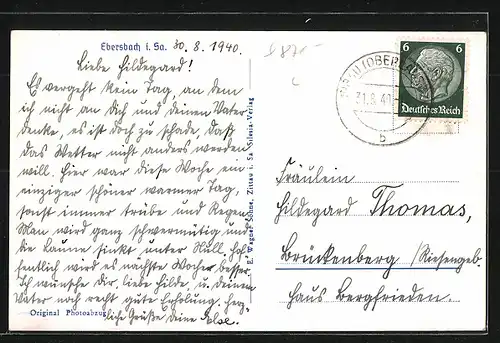 Ebersbach i. Sa. 30. 8. 1940.
Liebe Hildegard!
Es vergeht kein Tag, an dem
ich nicht an Dich und deinen Vater
denke, es ist doch zu schade, daß
das Wetter nicht anders werden
will. Hier war diese Woche ein
einziger schöner warmer Tag,
sonst immer trübe und Regen.
Man wird ganz schwermütig und
die Laune sinkt unter Null, hof-
fentlich wird es nächste Woche besser.
Ich wünsche Dir, liebe Hilde, u. deinem
Vater noch recht gute Erholung. Herz-
liche Grüße deine Else.
Original Photoabzug
E. Wagner Söhne, Zittau i. Sa. Silesia-Verlag
31.8.40
b
6 6
Deutsches Reich
Fräulein
Hildegard Thomas,
Brückenberg (Riesengeb.
Haus Bergfrieden.